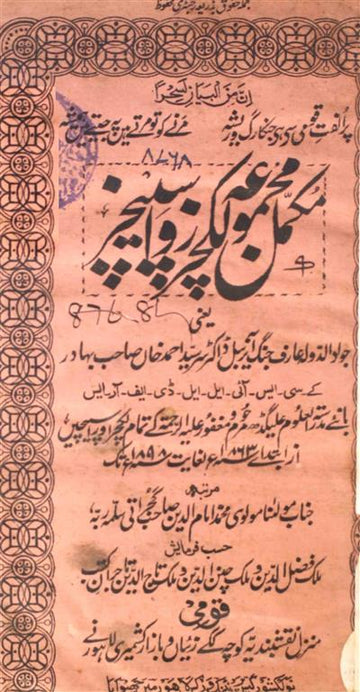 جملہ حقوق بذریعہ رجسٹری محفوظ
ان من البیان لسحرا
۸۷۶۸
مکمل مجموعہ لکچرز و اسپیچز
یعنی
جواد الدولہ عارف جنگ آنریبل ڈاکٹر سر سید احمد خان صاحب بہادر
کے۔سی۔ایس۔آئی۔ایل۔ایل۔ڈی۔ایف۔آر۔ایس
بانئے مدرسۃ العلوم علیگڈھ مرحوم و مغفور علیہ الرحمۃ کے تمام لکچر اور اسپیچیں
از ابتدائے ۱۸۶۳ء لغایت ۱۸۹۸ء تک
مرتبہ
جناب مولانا مولوی محمد امام الدین صاحب گجراتی سلمہ ربہ
حسب فرمایش
ملک فضل الدین و ملک چنن الدین و ملک تاج الدین تاجران کتب
قومی
منزل نقشبندیہ کوچہ ککے زئیاں بازار کشمیری لاہور نے